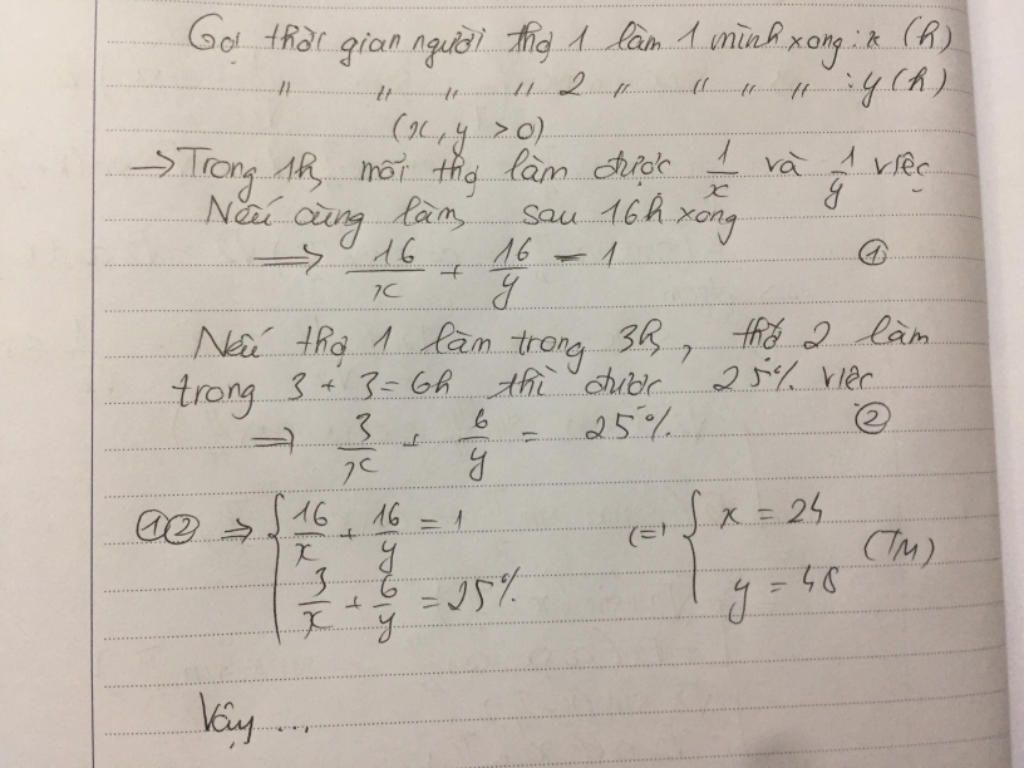 Gọi thời gian người thợ 1 làm 1 mình xong: x (h)
" " " " 2 " " " " : y (h)
(x, y > 0)
→ Trong 1h, mỗi thợ làm được 1/x và 1/y việc
Nếu cùng làm, sau 16h xong
⟹ 16/x + 16/y = 1 ①
Nếu thợ 1 làm trong 3h, thợ 2 làm
trong 3 + 3 = 6h thì được 25% việc
⟹ 3/x + 6/y = 25% ②
①② ⇒ { 16/x + 16/y = 1 (=) { x = 24 (TM)
3/x + 6/y = 25% y = 48
Vậy ...